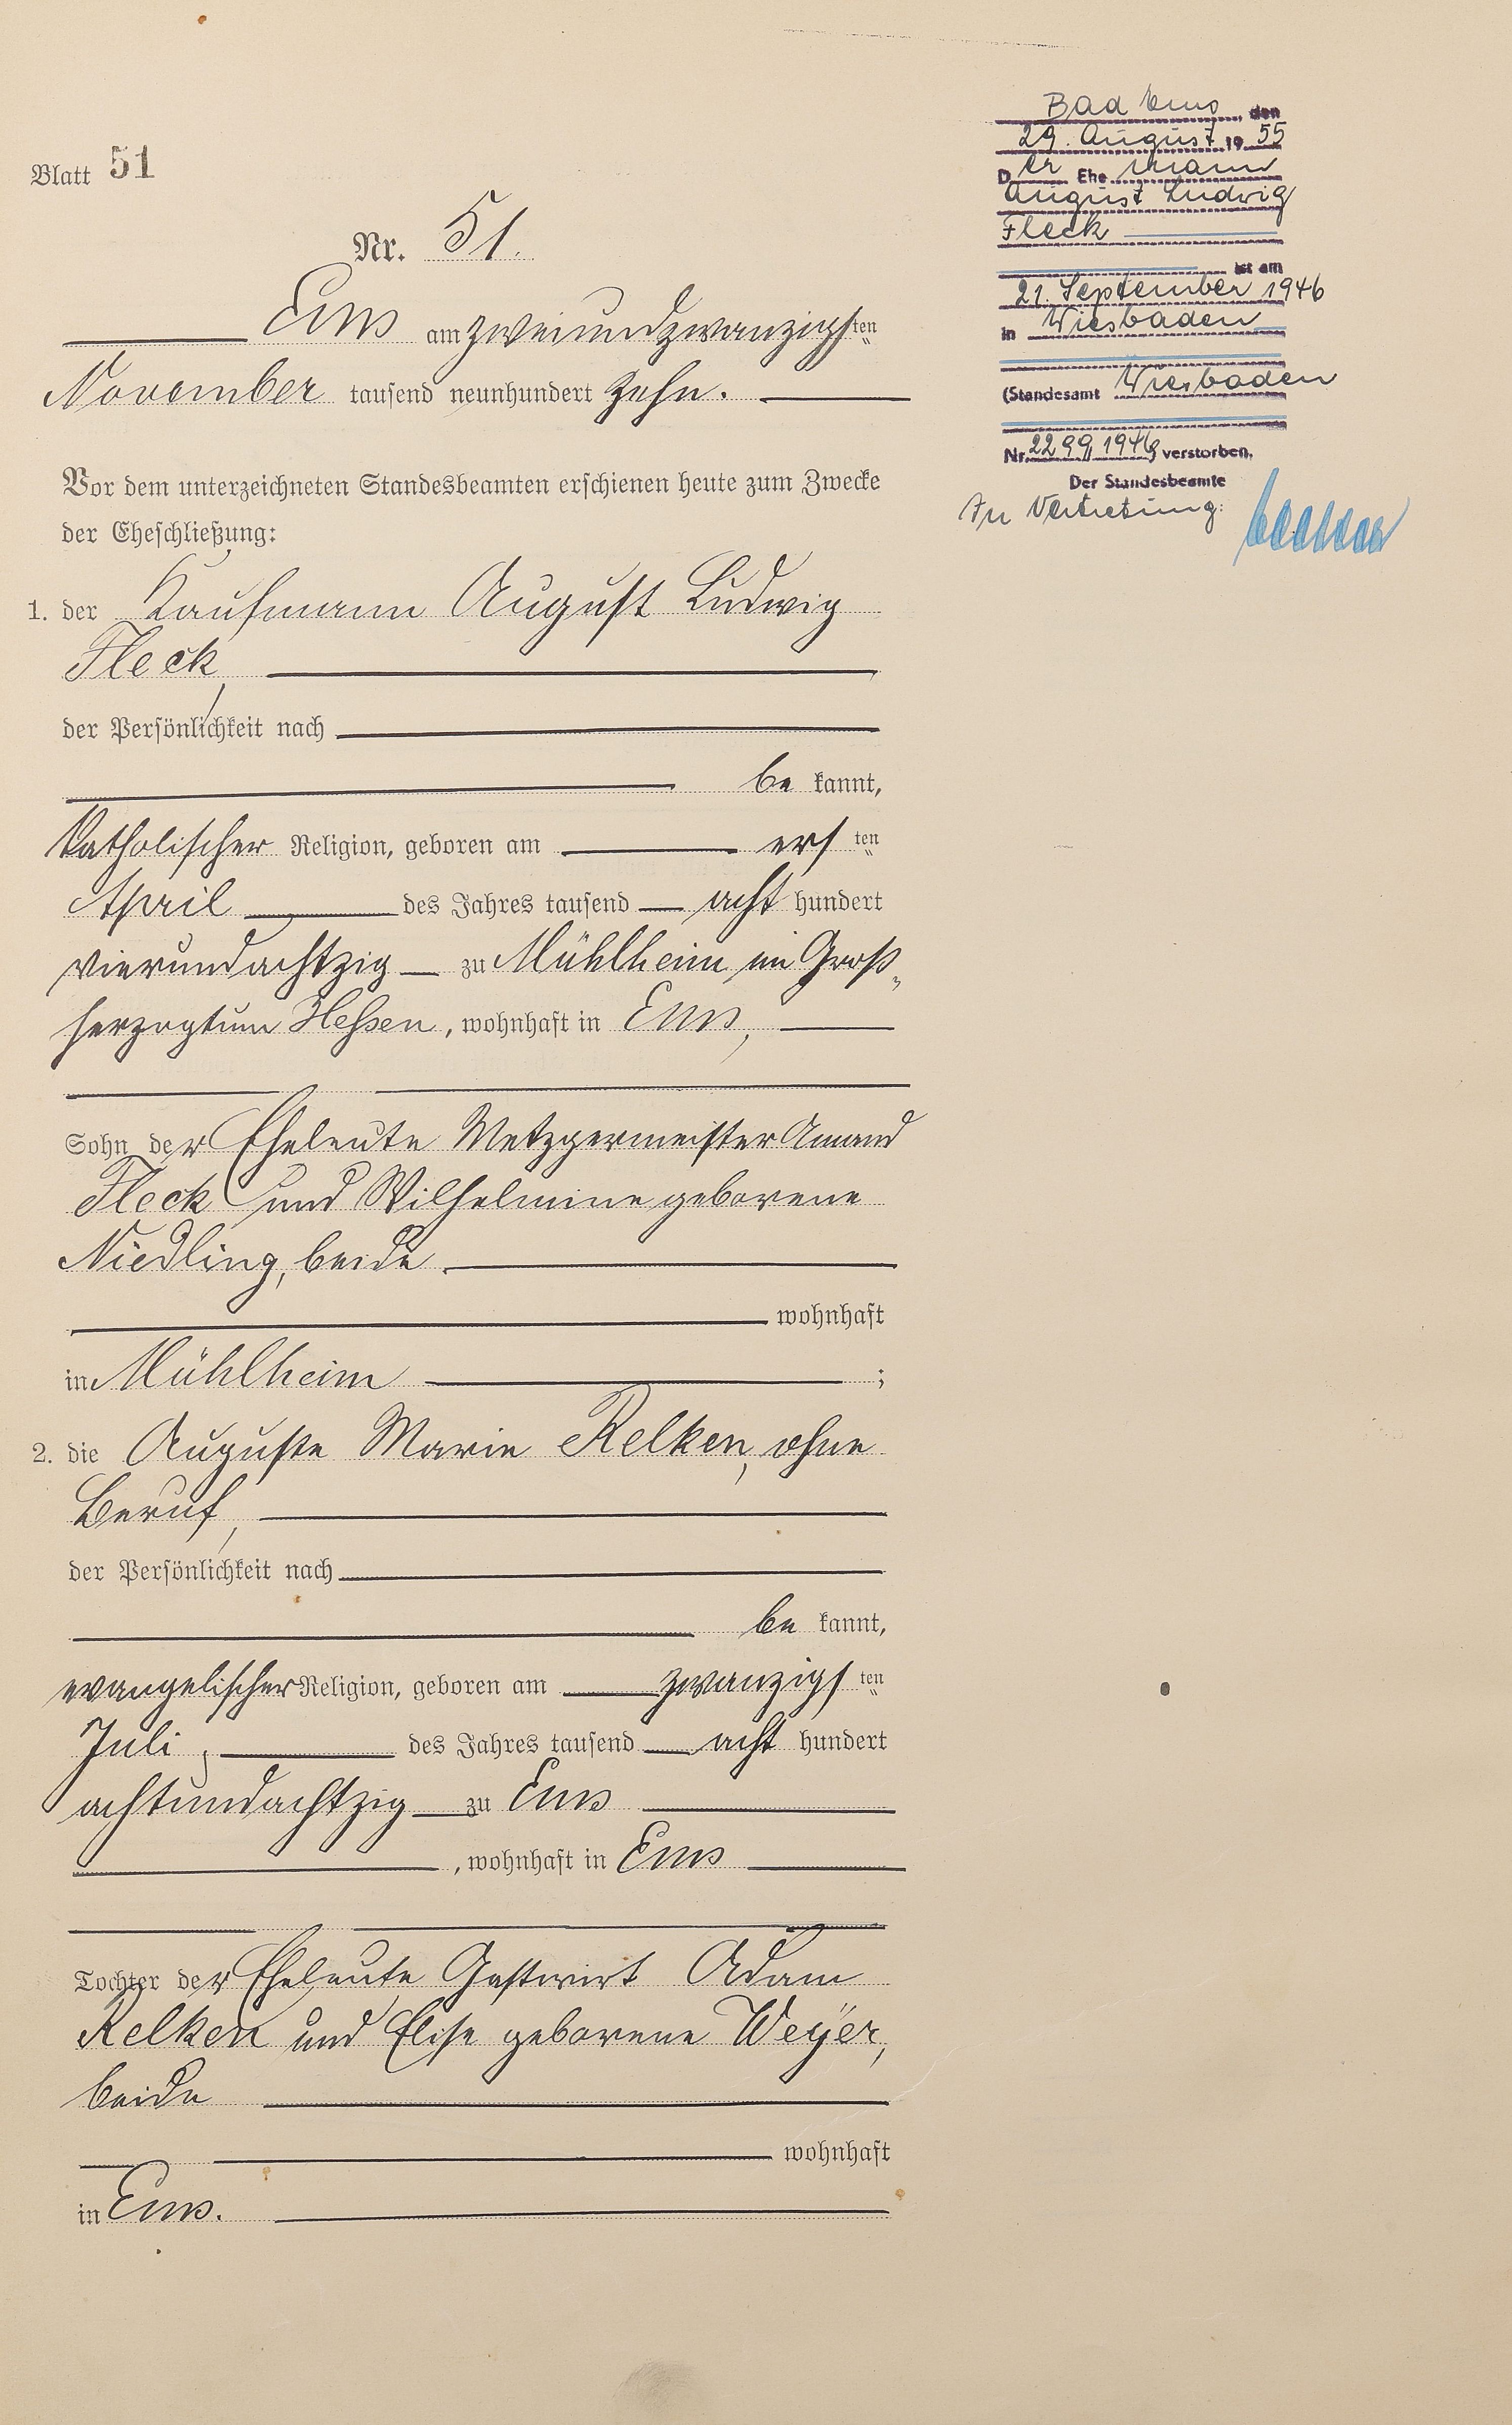 Blatt 51
Nr. 51.
Ems am zweiundzwanzigsten
November tausend neunhundert zehn.
Vor dem unterzeichneten Standesbeamten erschienen heute zum Zwecke
der Eheschließung:
1. der Kaufmann August Ludwig
Fleck,
der Persönlichkeit nach
be kannt,
katholischer Religion, geboren am ersten
April des Jahres tausend acht hundert
vierundachtzig zu Mühlheim im Groß-
herzogtum Hessen, wohnhaft in Ems,
Sohn der Eheleute Metzgermeister Amand
Fleck und Wilhelmine geborene
Niedling, beide
wohnhaft
in Mühlheim ;
2. die Auguste Marie Relken, ohne
Beruf,
der Persönlichkeit nach
be kannt,
evangelischer Religion, geboren am zwanzigsten
Juli des Jahres tausend acht hundert
achtundachtzig zu Ems
, wohnhaft in Ems
Tochter der Eheleute Gastwirt Adam
Relken und Elise geborene Weÿer,
beide
wohnhaft
in Ems.
Bad Ems, den
29. August 1955
Der Ehe mann
August Ludwig
Fleck
ist am
21. September 1946
in Wiesbaden
(Standesamt Wiesbaden
Nr. 2299/1946) verstorben.
Der Standesbeamte
In Vertretung: